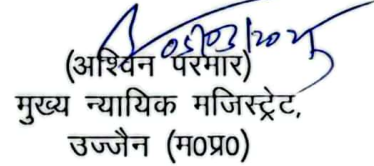 05/03/2024
(अश्विन परमार)
मुख्य न्यायिक मजिस्ट्रेट,
उज्जैन (म0प्र0)